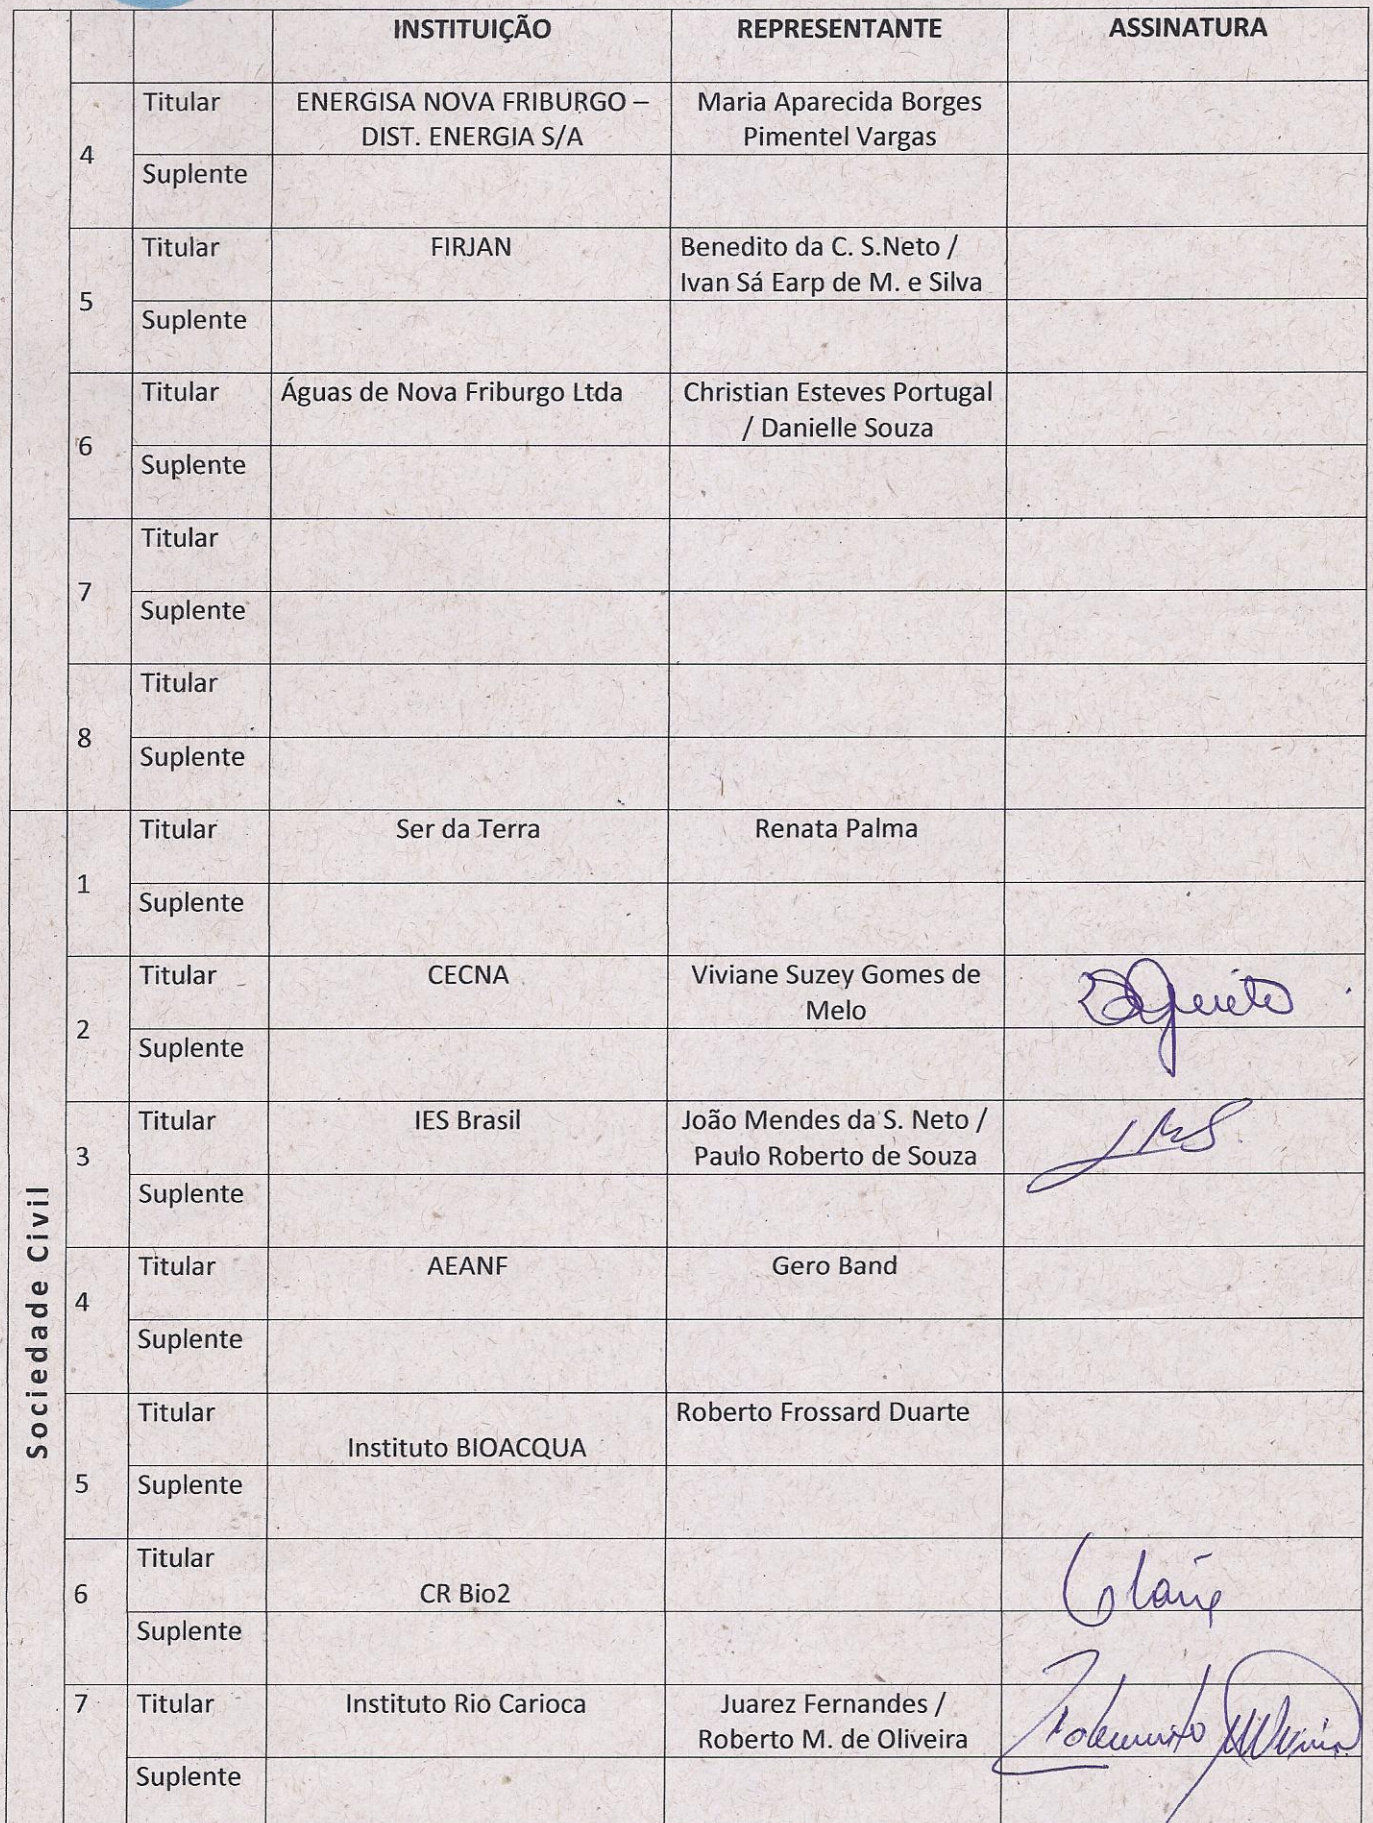 INSTITUIÇÃO REPRESENTANTE ASSINATURA
4 Titular ENERGISA NOVA FRIBURGO – Maria Aparecida Borges
DIST. ENERGIA S/A Pimentel Vargas
Suplente
5 Titular FIRJAN Benedito da C. S.Neto /
Ivan Sá Earp de M. e Silva
Suplente
6 Titular Águas de Nova Friburgo Ltda Christian Esteves Portugal
/ Danielle Souza
Suplente
7 Titular
Suplente
8 Titular
Suplente
Sociedade Civil
1 Titular Ser da Terra Renata Palma
Suplente
2 Titular CECNA Viviane Suzey Gomes de
Melo
Suplente
3 Titular IES Brasil João Mendes da S. Neto /
Paulo Roberto de Souza
Suplente
4 Titular AEANF Gero Band
Suplente
5 Titular Roberto Frossard Duarte
Instituto BIOACQUA
Suplente
6 Titular
CR Bio2
Suplente
7 Titular Instituto Rio Carioca Juarez Fernandes /
Roberto M. de Oliveira
Suplente